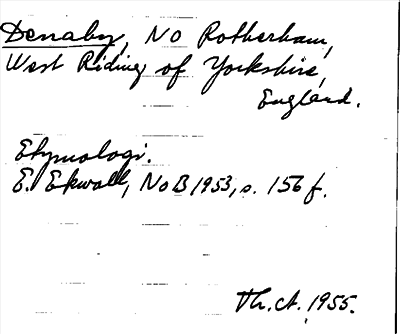 Denaby, NO Rotherham,
West Riding of Yorkshire,
England.
Etymologi.
E. Ekwall, NoB 1953, s. 156 f.
Th. A. 1955.